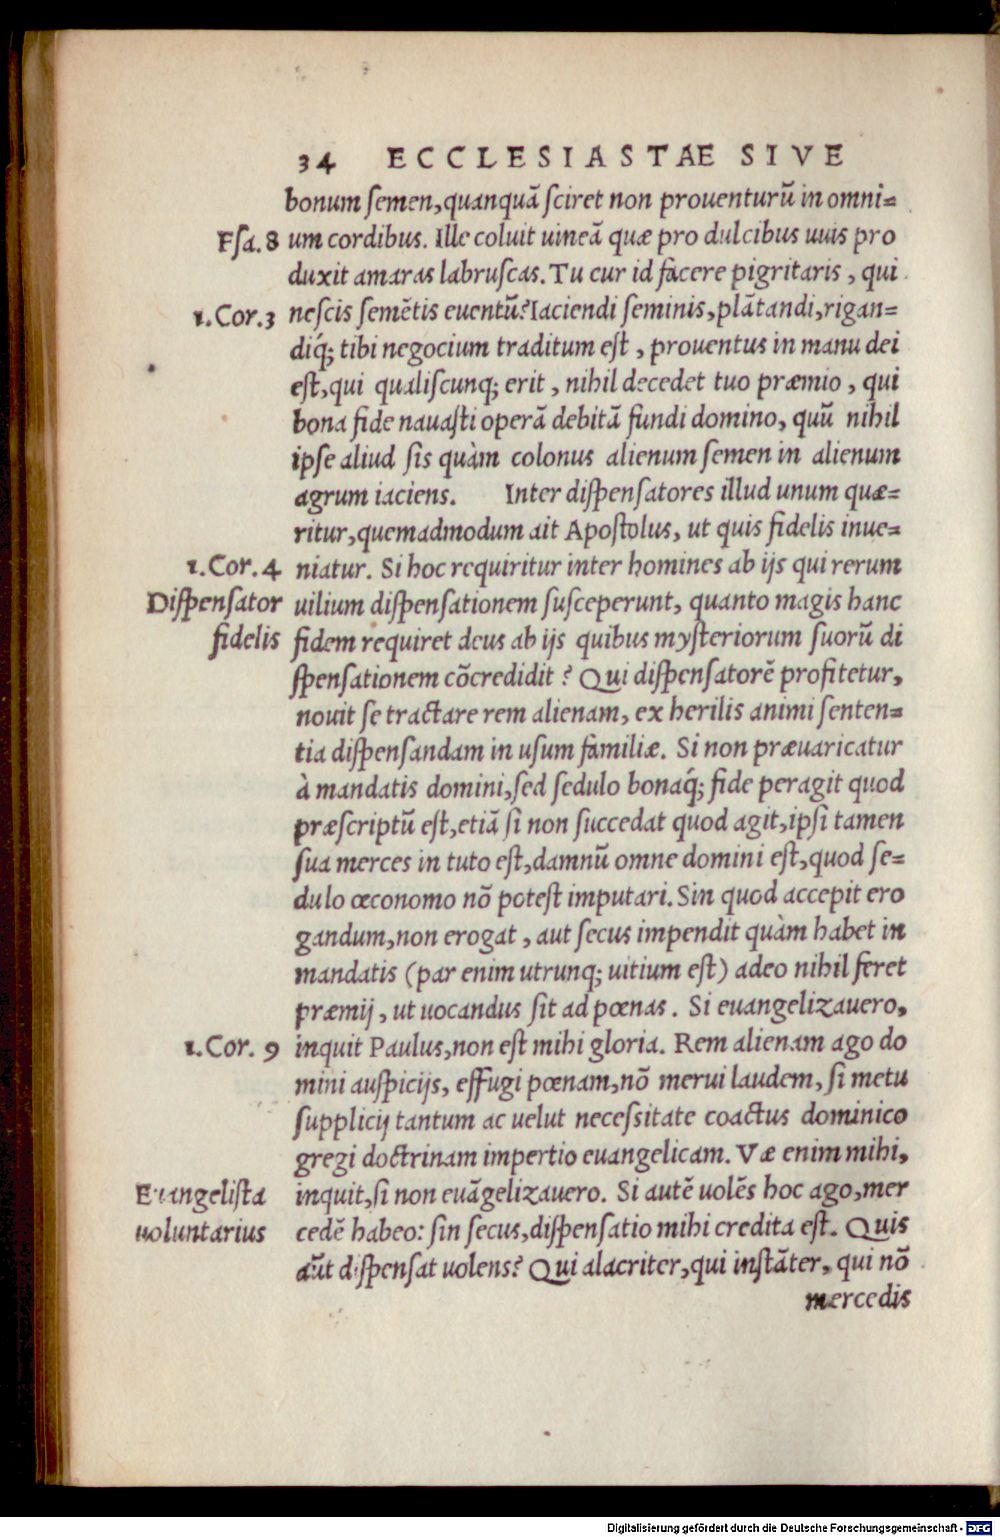 34 ECCLESIASTAE SIVE
bonum ſemen,quanquā ſciret non prouenturū in omni=
Eſa. 8 um cordibus. Ille coluit uineā quæ pro dulcibus uuis pro
duxit amaras labruſcas. Tu cur id facere pigritaris , qui
1.Cor.3 neſcis ſemētis euentū? Iaciendi ſeminis,plātandi,rigan=
diq́; tibi negocium traditum eſt , prouentus in manu dei
eſt,qui qualiſcunq; erit , nihil decedet tuo præmio , qui
bona fide nauaſti operā debitā fundi domino, quū nihil
ipſe aliud ſis quàm colonus alienum ſemen in alienum
agrum iaciens. Inter diſpenſatores illud unum quæ=
ritur,quemadmodum ait Apoſtolus, ut quis fidelis inue=
1.Cor. 4 niatur. Si hoc requiritur inter homines ab ijs qui rerum
Diſpenſator uilium diſpenſationem ſuſceperunt, quanto magis hanc
fidelis fidem requiret deus ab ijs quibus myſteriorum ſuorū di
ſpenſationem cōcredidit ? Qui diſpenſatorē profitetur,
nouit ſe tractare rem alienam, ex herilis animi ſenten=
tia diſpenſandam in uſum familiæ. Si non præuaricatur
à mandatis domini,ſed ſedulo bonaq́; fide peragit quod
præſcriptū eſt,etiā ſi non ſuccedat quod agit,ipſi tamen
ſua merces in tuto eſt,damnū omne domini eſt,quod ſe=
dulo œconomo nō poteſt imputari. Sin quod accepit ero
gandum,non erogat , aut ſecus impendit quàm habet in
mandatis (par enim utrunq; uitium eſt) adeo nihil feret
præmij , ut uocandus ſit ad pœnas . Si euangelizauero,
1.Cor. 9 inquit Paulus,non eſt mihi gloria. Rem alienam ago do
mini auſpicijs, effugi pœnam,nō merui laudem, ſi metu
ſupplicij tantum ac uelut neceſsitate coactus dominico
gregi doctrinam impertio euangelicam. Væ enim mihi,
Euangeliſta inquit,ſi non euāgelizauero. Si autē uolēs hoc ago,mer
uoluntarius cedē habeo: ſin ſecus,diſpenſatio mihi credita eſt. Quis
aūt diſpenſat uolens? Qui alacriter,qui inſtāter, qui nō
mercedis
Digitalisierung gefördert durch die Deutsche Forschungsgemeinschaft - DFG